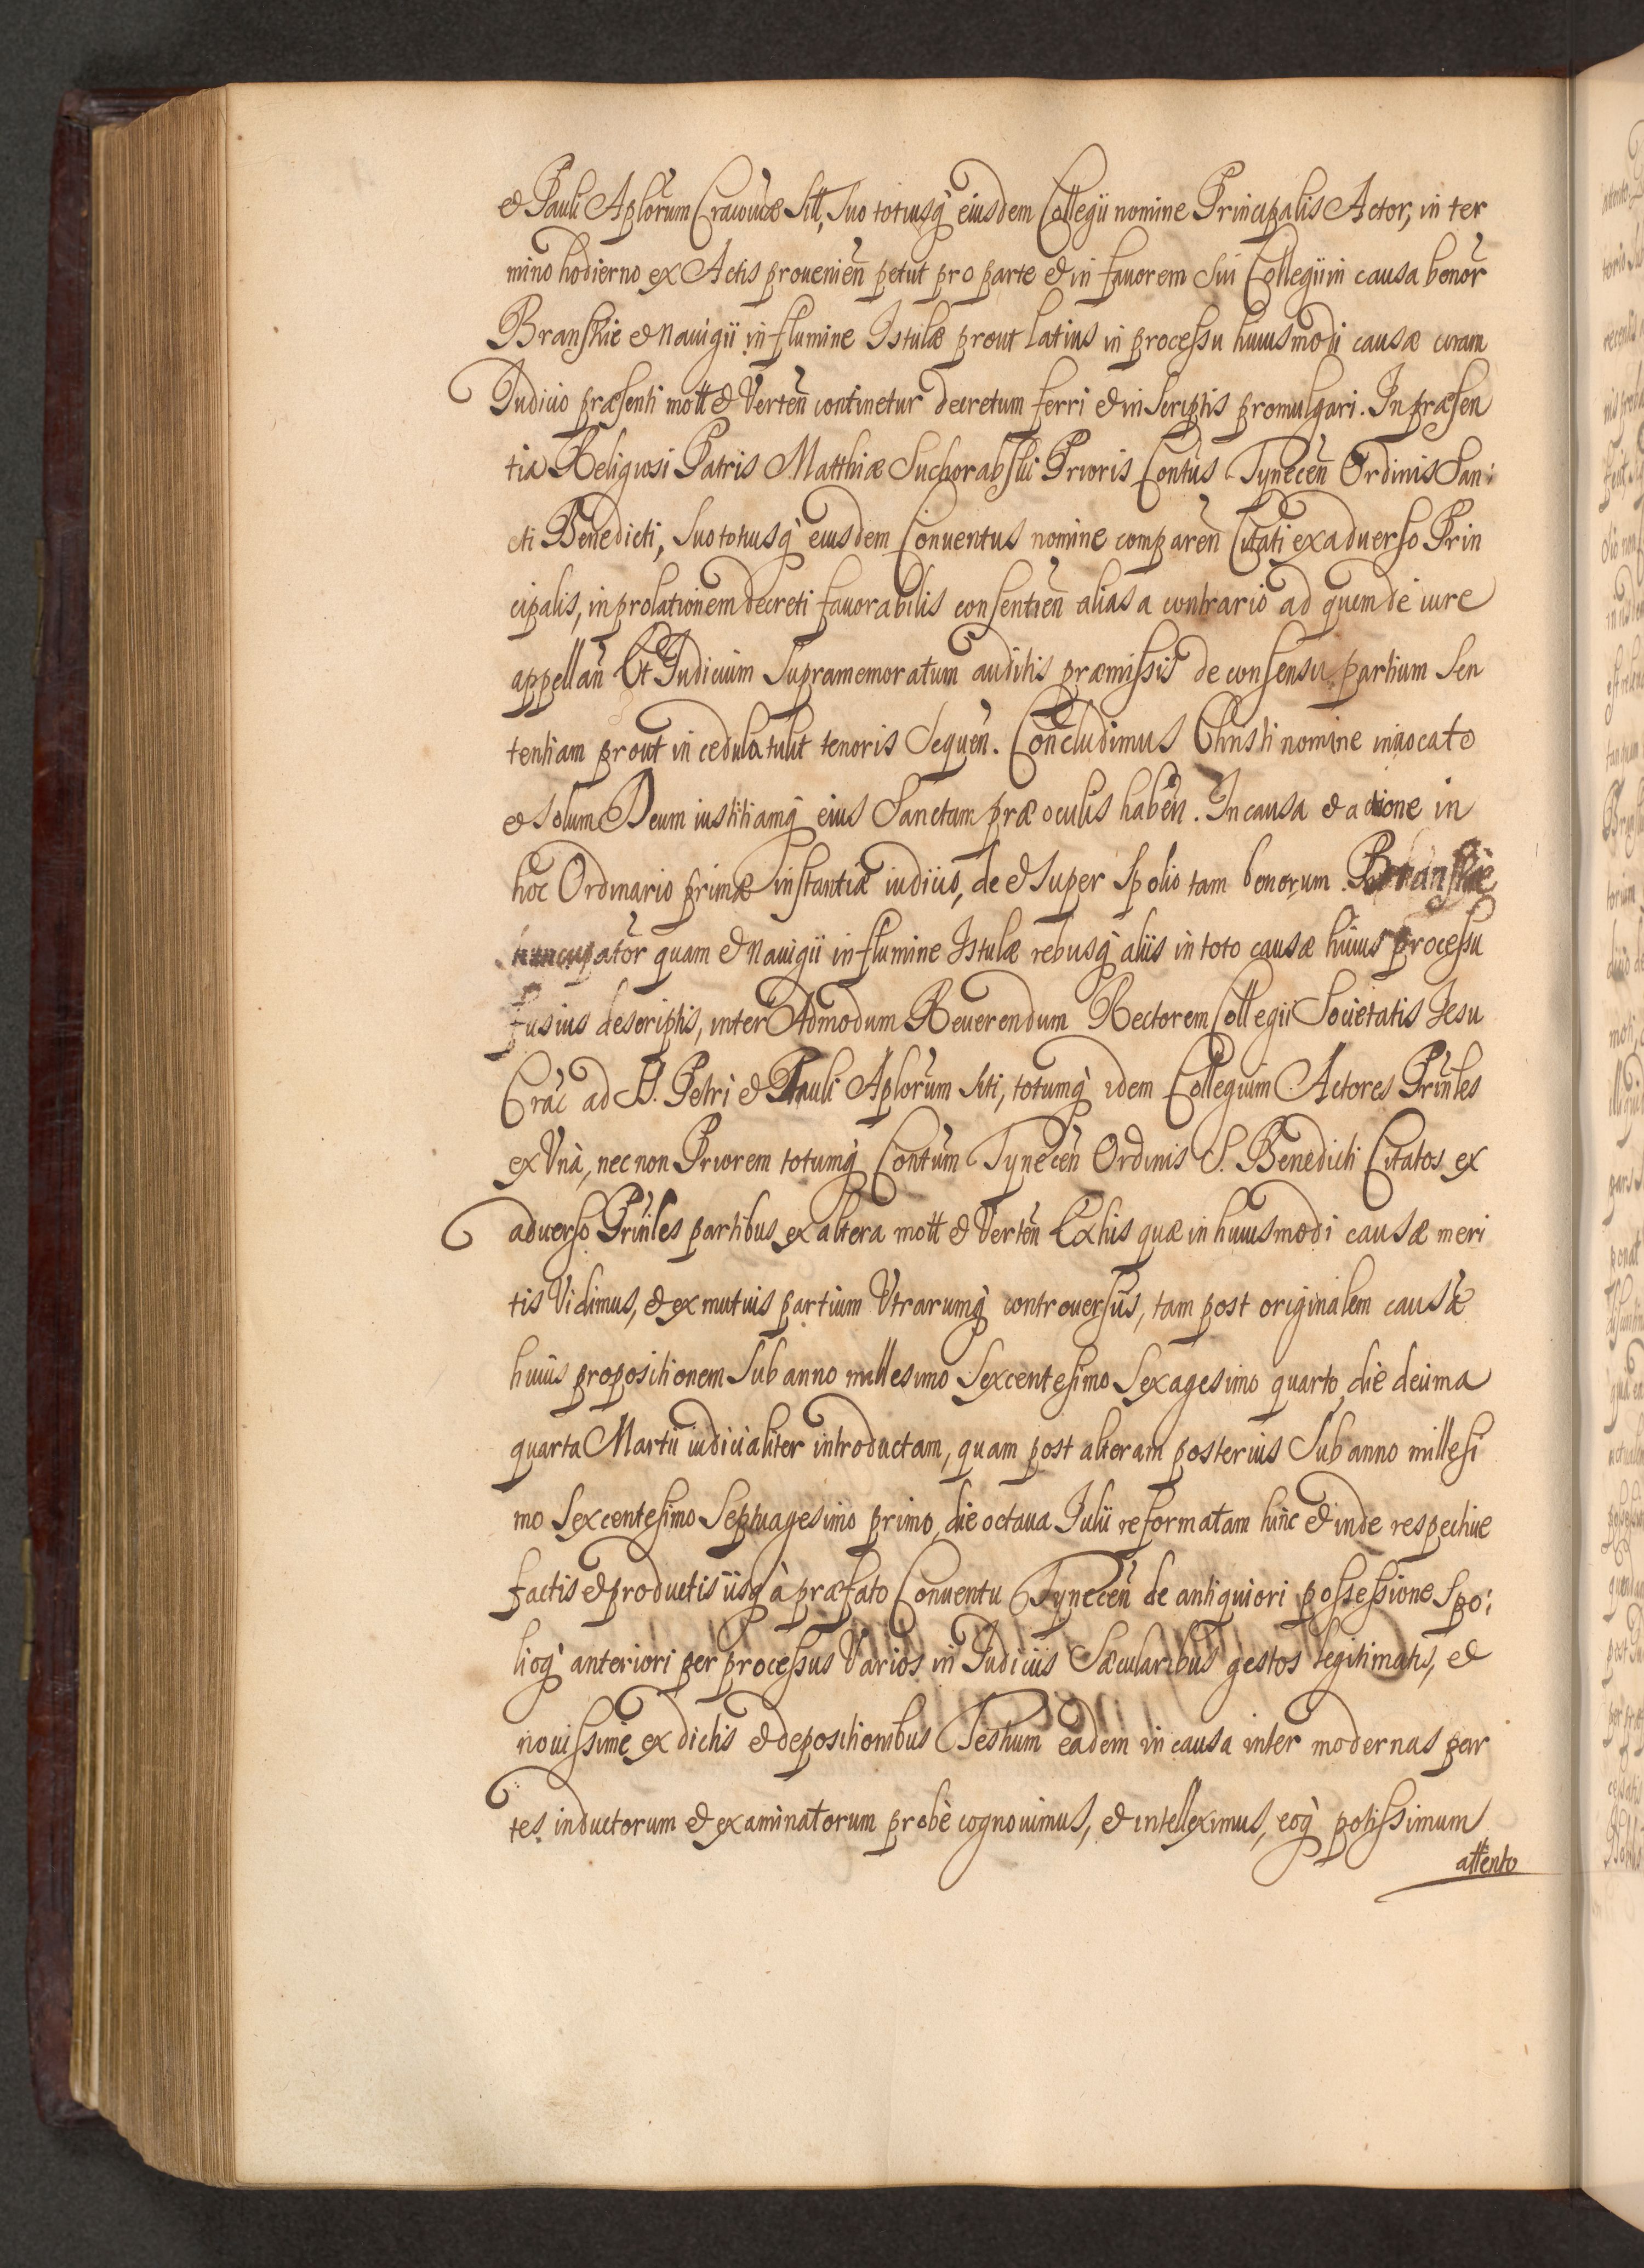 & Pauli Aplorum Cracoviæ Sitt, Suo totiusq̀ eiusdem Collegii nomine Principalis Actor, in ter
mino hodierno ex Actis provenieñ petut pro parte & in favorem Sui Collegii in causa bonor̃
Branskie & navigii in flumine Istulæ prout latius in processu huiusmodi causæ coram
Iudicio præsenti mott & Verteñ continetur decretum ferri & in scriptis promulgari. In præsen
tia Religiosi Patris Matthiæ Suchorabski Prioris Contùs Tyneceñ Ordinis San:
cti Benedicti, Suo totiusq̀ eiusdem Conventus nomine compareñ Citati ex adverso Prin
cipalis, in prolationem decreti favorabilis consentieñ alias a contrario ad quem de iure
appellañ Et Iudicium Supramemoratum auditis præmissis de consensu partium Sen
tentiam prout in cedula tulit tenoris Sequeñ. Concludimus Christi nomine invocato
& Solum Deum iustitiamq̀ eius Sanctam præ oculis habeñ. In causa & actione in
hoc Ordinario primæ instantiæ iudicio, de & super Spolio tam bonorum Branskie
nuncupator̃ quam & Navigii in flumine Istulæ rebusq̀ aliis in toto causæ huius processu
fusius descriptis, inter Admodum Reverendum Rectorem Collegii Societatis Iesu
Crac̃ ad SS. Petri & Pauli Aplorum Siti, totumq̀ idem Collegium Actores Prinles
ex Unà, nec non Priorem totumq̀ Contum Tyneceñ Ordinis S. Benedicti Citatos ex
adverso Prinles partibus ex altera mott & Verteñ Ex his quæ in huiusmodi causæ meri
tis Vidimus, & ex mutuis partium Utrarumq̀ controversiis, tam post originalem causæ
huius propositionem Sub anno millesimo Sexcentesimo Sexagesimo quarto, die decima
quarta Martii iudicialiter introductam, quam post alteram posterius Sub anno millesi
mo Sexcentesimo Septuagesimo primo, die octava Iulii reformatam hinc & inde respective
factis & productis iisq̀ à præfato Conventu Tyneceñ de antiquiori possessione Spo:
lioq̀ anteriori per processus Varios in Iudiciis Sæcularibus gestos legitimatis, &
novissimè ex dictis & depositionibus Testium eâdem in causa inter modernas par
tes inductorum & examinatorum probè cognovimus, & intelleximus, eoq̀ potissimum
attento